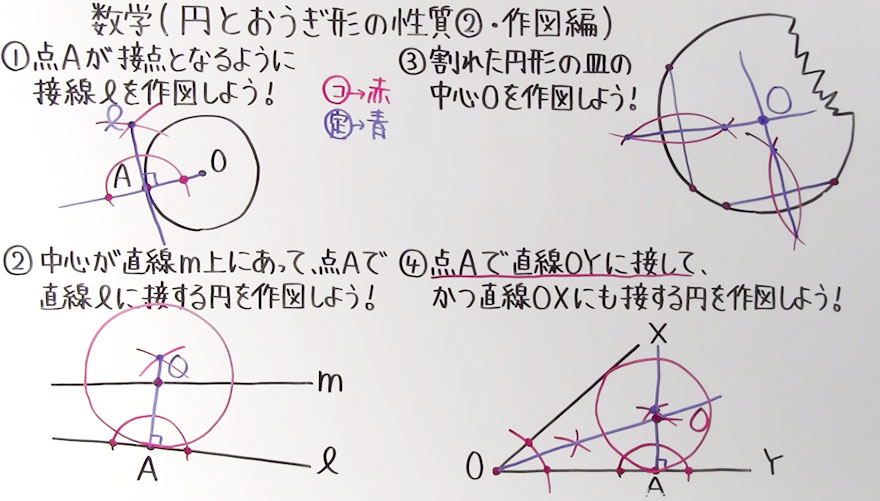 数学(円とおうぎ形の性質②・作図編)
①点Aが接点となるように
接線ℓを作図しよう!
コ→赤
定→青
ℓ
A
O
②中心が直線m上にあって、点Aで
直線ℓに接する円を作図しよう!
O
m
A
ℓ
③割れた円形の皿の
中心Oを作図しよう!
O
④点Aで直線OYに接して、
かつ直線OXにも接する円を作図しよう!
X
O
O
A
Y